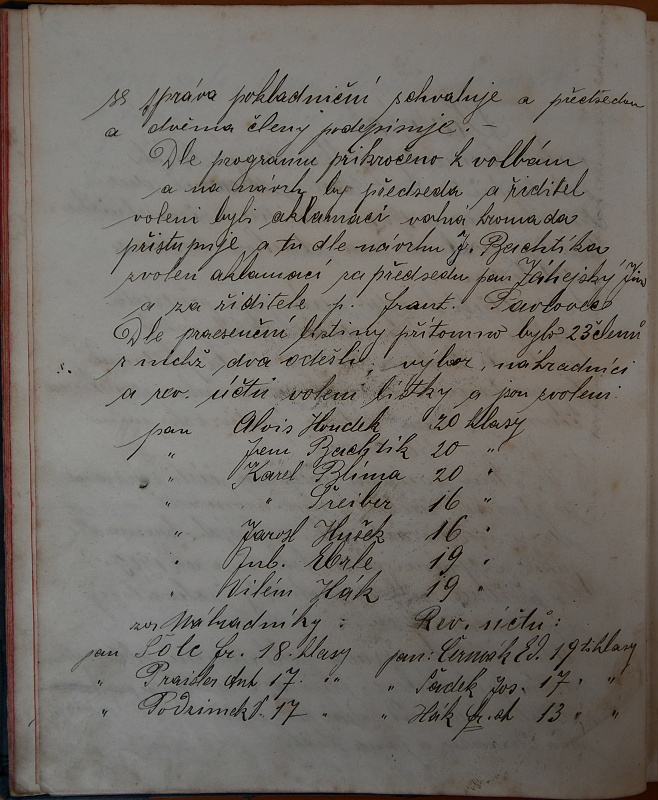 se správa pokladniční schvaluje a předsedou
a dvěma členy podepisuje. —
Dle programu přikročeno k volbám
a na návrh by předseda a řiditel
voleni byli aklamací valná hromada
přistupuje a tu dle návrhu J. Bachtíka
zvolen aklamací za předsedu pan Záhejský
a za řiditele p. frant. Pavlovec
Dle praesenční listiny přítomno bylo 23 členů
z nichž dva odešli, výbor, náhradníci
a rev. účtů voleni lístky a jsou zvoleni:
pan Alois Houdek 20 hlasy
" Jem Bachtík 20 "
" Karel Blíma 20 "
" " Šreiber 16 "
" Jarosl Hušek 16 "
" Eberle 19 "
" Vilém Hák 19 "
za Náhradníky: Rev. účtů:
pan Šolc fr. 18 hlasy pan: Čermák Ed. 19ti hlasy
" Praisler Ant 17 " " Sádek Jos. 17 " "
" Podzimek 17 " " Hák 13 " "